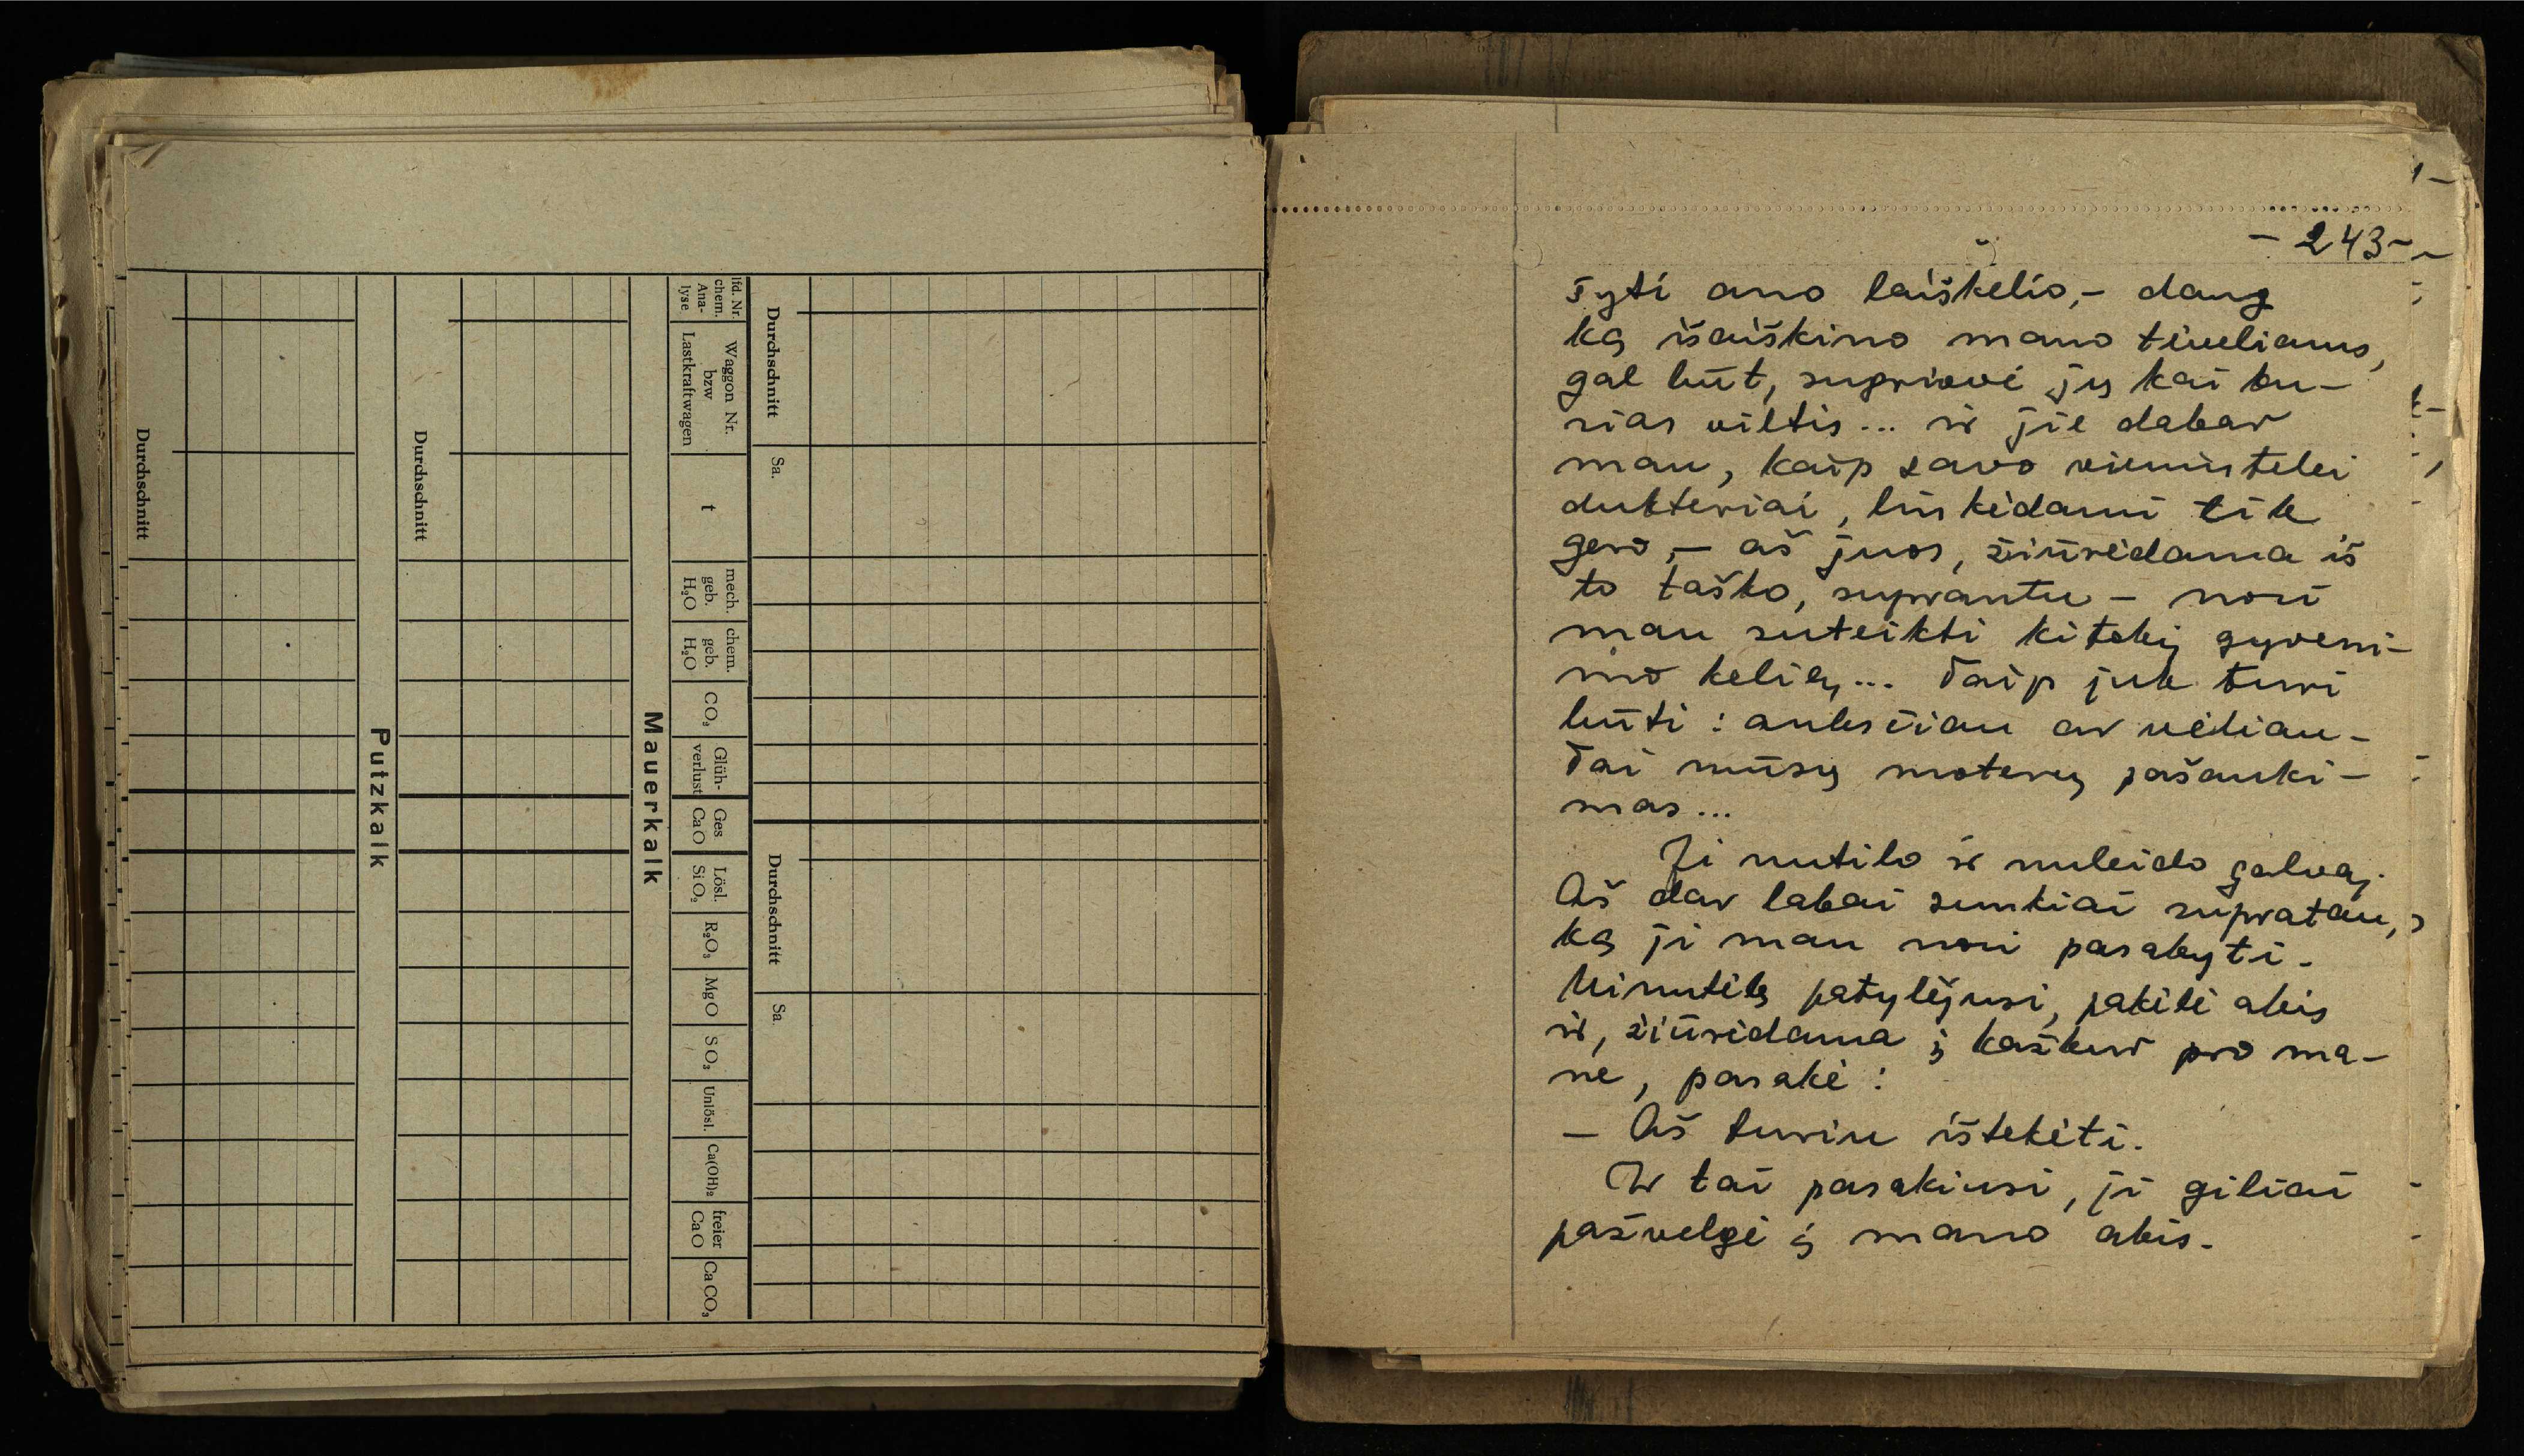 Durchschnitt
Durchschnitt
Putzkalk
Mauerkalk
lfd. Nr.
chem.
Ana-
lyse
Waggon Nr.
bzw
Lastkraftwagen
t
mech.
geb.
H₂O
chem.
geb.
H₂O
CO₂
Glüh-
verlust
Ges
CaO
Lösl.
SiO₂
R₂O₃
MgO
SO₃
Unlösl.
Ca(OH)₂
freier
CaO
CaCO₃
Durchschnitt
Sa.
Durchschnitt
Sa.
- 243 -
šyti ano laiškelio, - daug
ką išaiškino mano tėveliams,
gal būt, sugriovė jų kai ku-
rias viltis... ir jie dabar
man, kaip savo vienintelei
dukteriai, linkėdami tik
gero, - aš juos, žiūrėdama iš
to taško, suprantu - nori
man suteikti kitokį gyveni-
mo kelią... Taip juk turi
būti: anksčiau ar vėliau -
Tai mūsų moterų pašauki-
mas...
Ji nutilo ir nuleido galvą.
Aš dar labai sunkiai supratau,
ką ji man nori pasakyti.
Minutėlę patylėjusi, pakėlė akis
ir, žiūrėdama į kažkur pro ma-
ne, pasakė:
- Aš turiu ištekėti.
Ir tai pasakiusi, ji giliai
pažvelgė į mano akis.